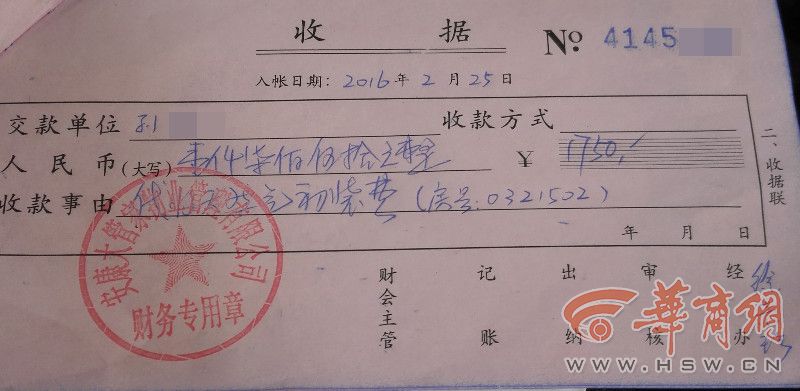 收 据
No. 4145
入帐日期: 2016 年 2 月 25 日
交款单位 孙 收款方式
人民币(大写) 壹仟柒佰伍拾元整 ¥ 1750/
收款事由 代收天然气初装费 (房号:0321502)
年 月 日
二、收据联
财会主管 记账 出纳 审核 经办 徐
安康大管家物业管理有限公司
财务专用章
华商网
WWW.HSW.CN